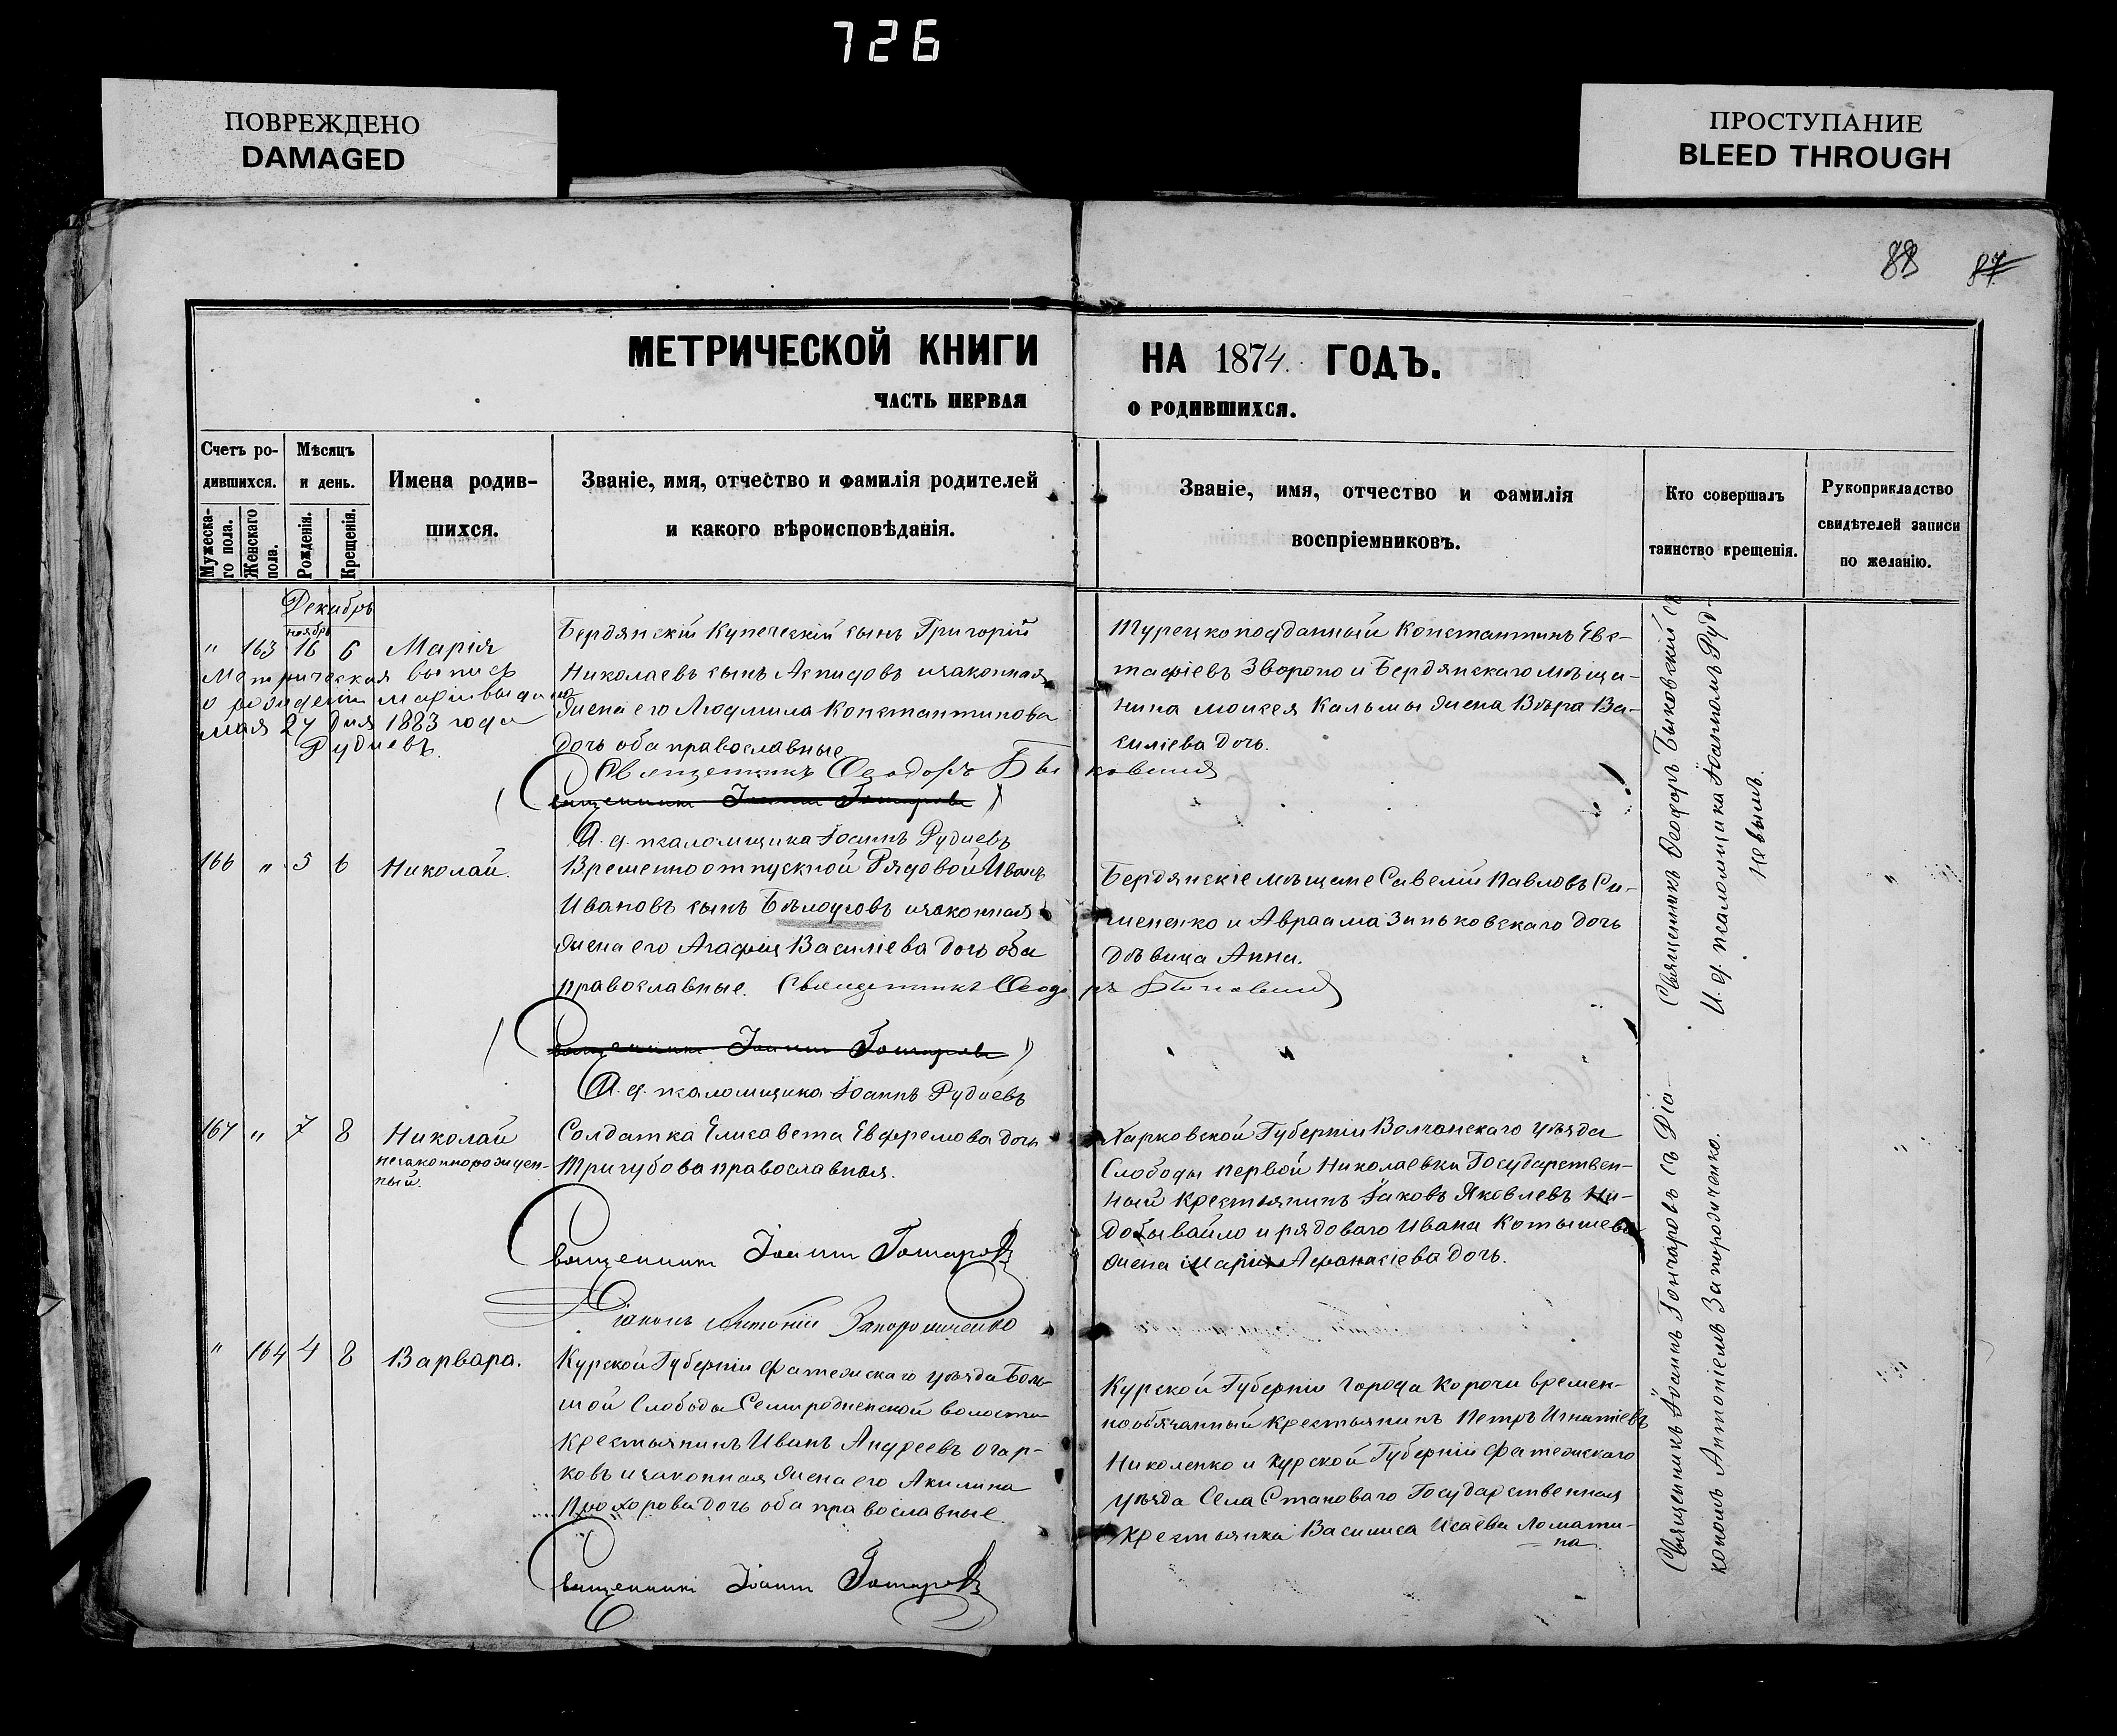 726
ПОВРЕЖДЕНО
DAMAGED
ПРОСТУПАНИЕ
BLEED THROUGH
88 87
МЕТРИЧЕСКОЙ КНИГИ НА 1874. ГОДЪ.
ЧАСТЬ ПЕРВАЯ О РОДИВШИХСЯ.
Счетъ ро-
дившихся.
Мужеска-
го пола.
Женскаго
пола.
Мѣсяцъ
и день.
Рожденія.
Крещенія.
Имена родив-
шихся.
Званіе, имя, отчество и фамилія родителей
и какого вѣроисповѣданія.
Званіе, имя, отчество и фамилія
воспріемниковъ.
Кто совершалъ
таинство крещенія.
Рукоприкладство
свидѣтелей записи
по желанію.
Декабрь
ноябрь
" 163 16 6 Марія
Метрическая выпись
о рожденіи Маріи выдана
мая 27 дня 1883 года
Рудневъ.
Бердянскій Купеческій сынъ Григорій
Николаевъ сынъ Аспидовъ и законная
жена его Людмила Константинова
дочь оба православные
Священникъ Ѳеодоръ Быковскій
Священникъ Іоаннъ Гончаровъ
И. д. псаломщика Іоаннъ Рудневъ
Турецкоподданный Константинъ Евс-
тафіевъ Звороно и Бердянскаго мѣща-
нина Моисея Кальмы жена Вѣра Ва-
силіева дочь.
Священникъ Ѳеодоръ Быковскій съ
И. д. псаломщика Іоанномъ Руд-
невымъ.
166 " 5 6 Николай.
Временноотпускной Рядовой Иванъ
Ивановъ сынъ Бѣлоусовъ и законная
жена его Агафія Василіева дочь оба
православные. Священникъ Ѳеодоръ Быковскій
Священникъ Іоаннъ Гончаровъ
И. д. псаломщика Іоаннъ Рудневъ
Бердянскіе мѣщане Савелій Павловъ Си-
мененко и Авраама Зиньковскаго дочь
дѣвица Анна.
167 " 7 8 Николай
незаконнорожден-
ный.
Солдатка Елисавета Евфремова дочь
Тригубова православная.
Священникъ Іоаннъ Гончаровъ
Діаконъ Антоній Запорожченко
Харковской Губерніи Волчанскаго уѣзда
Слободы первой Николаевки Государствен-
ный крестьянинъ Іаковъ Яковлевъ Ни-
добывайло и рядоваго Ивана Котышева
жена Марія Афанасіева дочь.
Священникъ Іоаннъ Гончаровъ съ Діа-
кономъ Антоніемъ Запородченко.
" 164 4 8 Варвара.
Курской Губерніи Фатежскаго уѣзда Боль-
шой Слободы волости
крестьянинъ Иванъ Андреевъ Огар-
ковъ и законная жена его Акилина
Прохорова дочь оба православные.
Священникъ Іоаннъ Гончаровъ
Курской Губерніи города Корочи времен-
нообязанный крестьянинъ Петръ Игнатіевъ
Николенко и Курской Губерніи Фатежскаго
уѣзда Села Становаго Государственная
крестьянка Василиса Исаева Ломати-
на